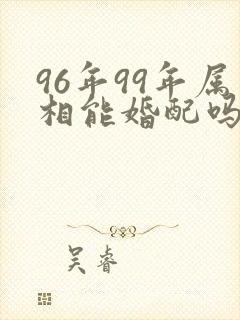 96年99年属
相能婚配吗
吴睿